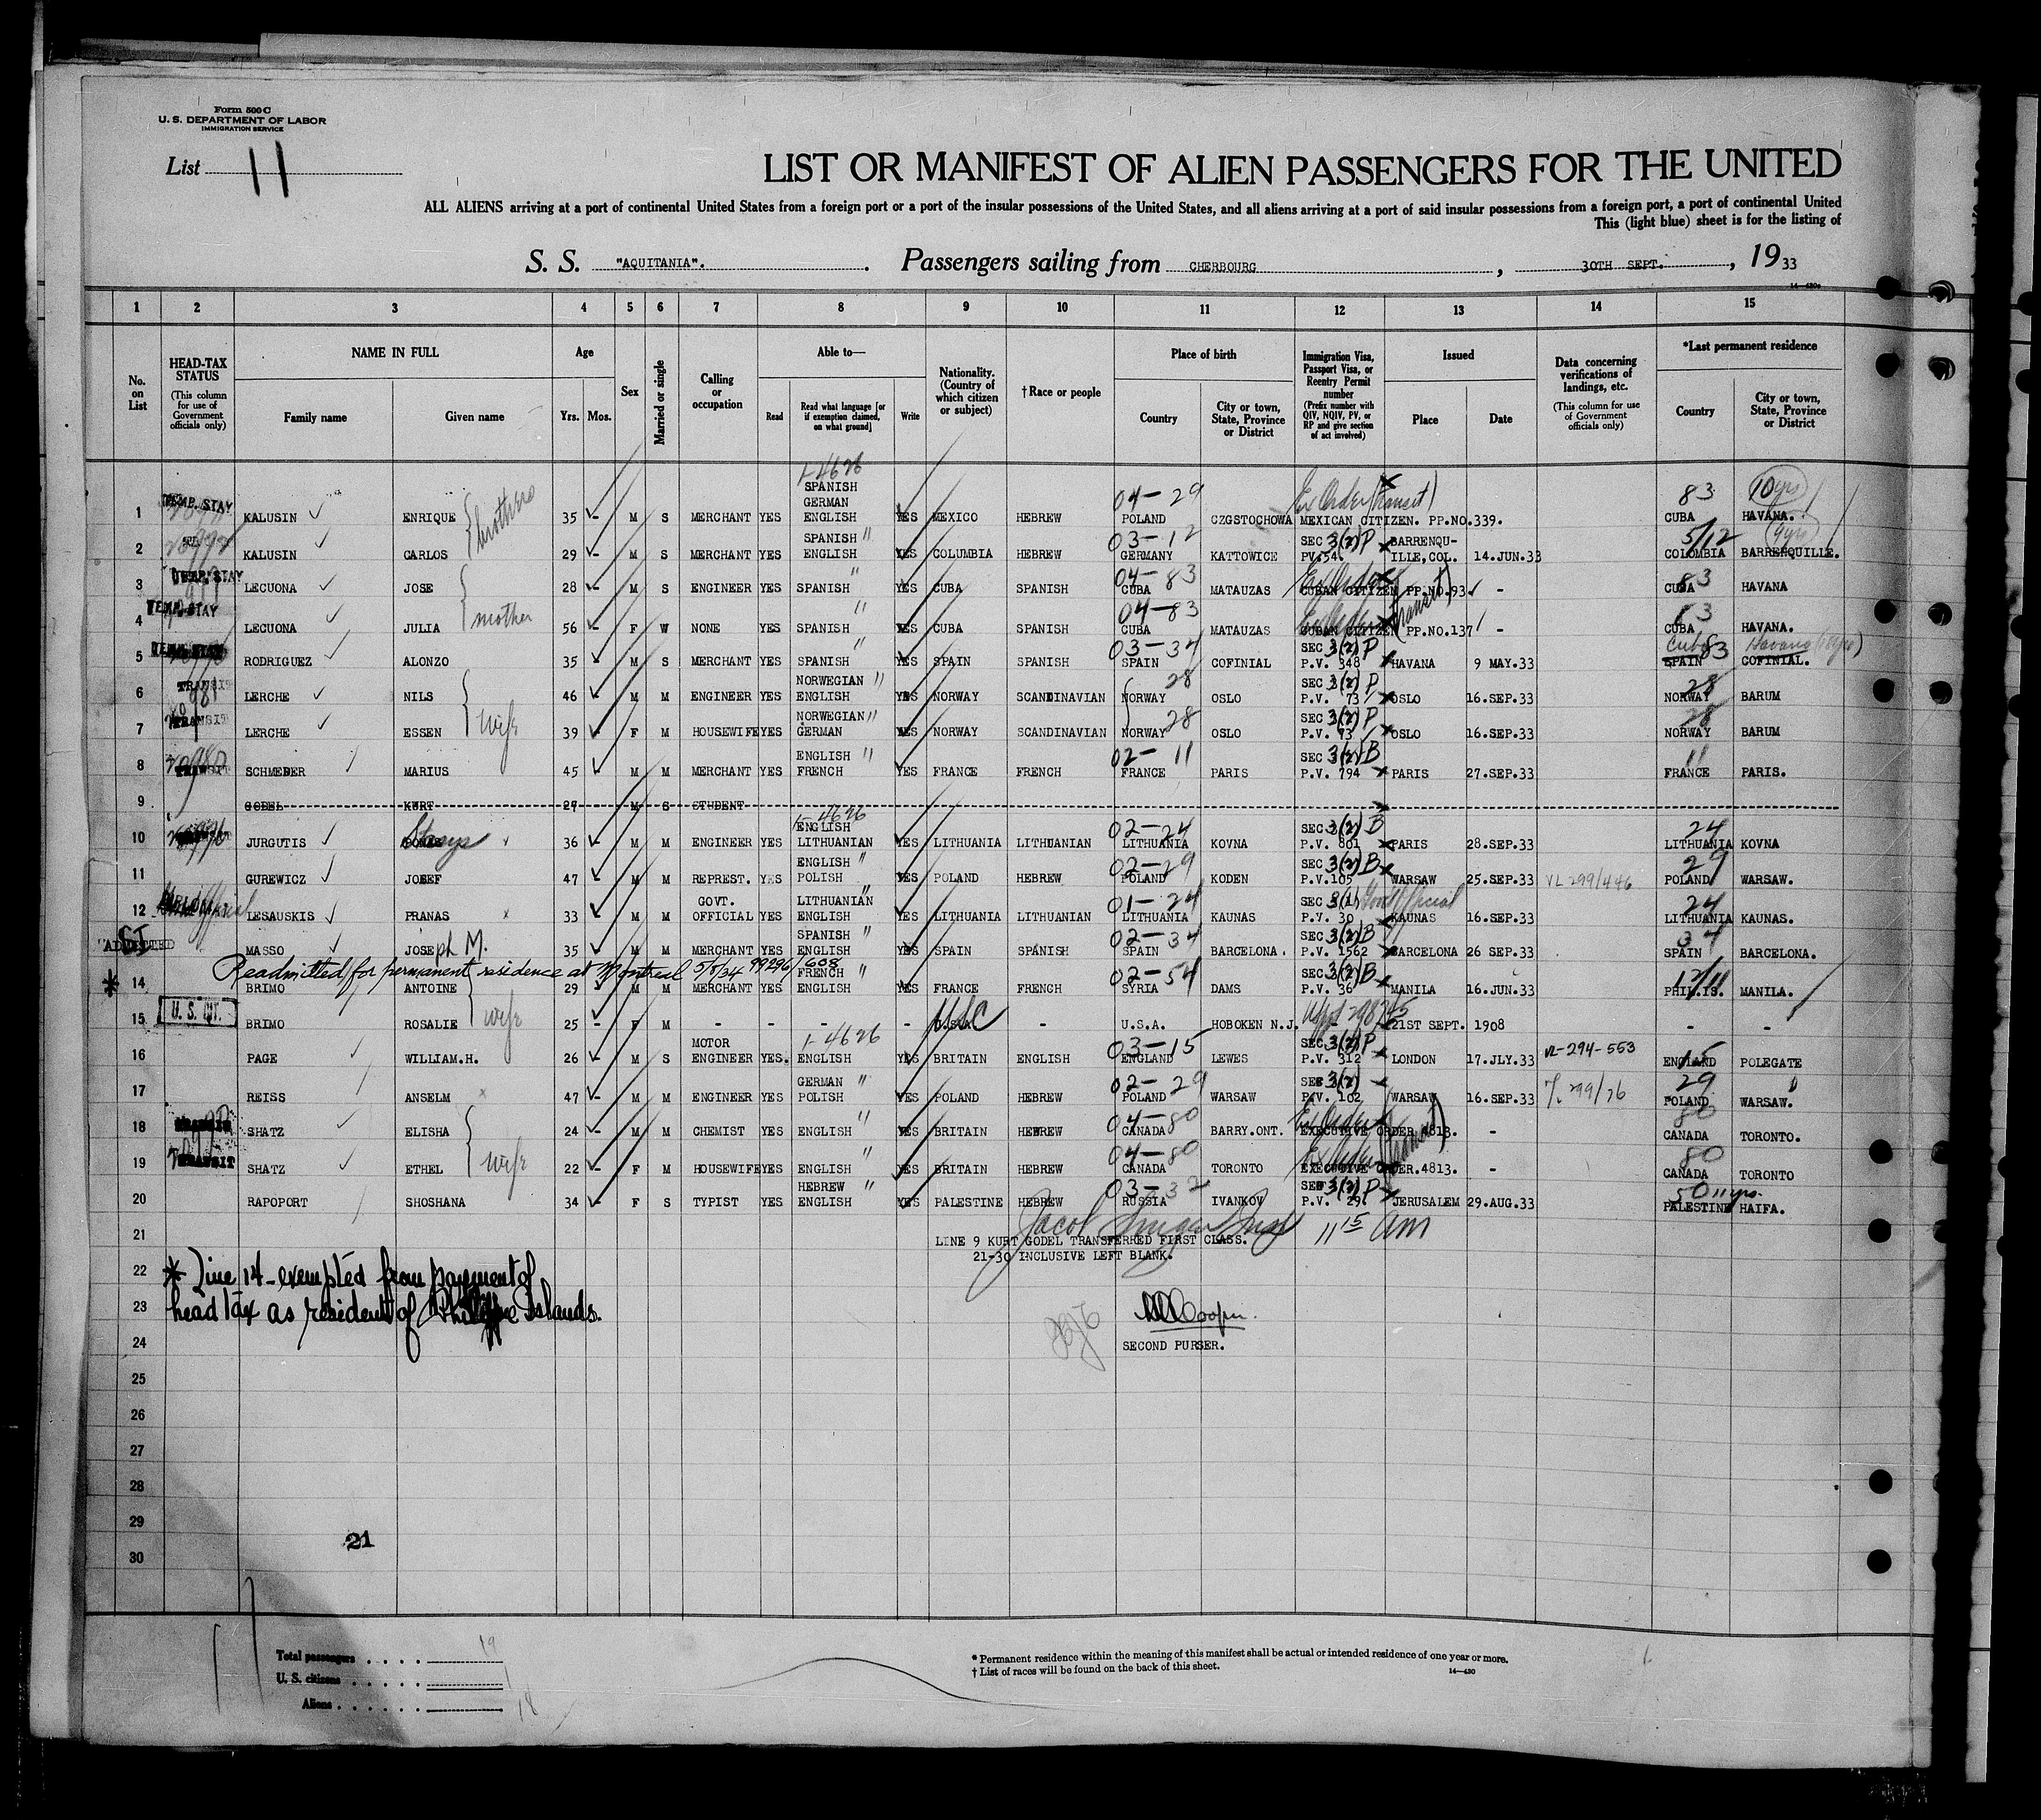 Form 500 C
U. S. DEPARTMENT OF LABOR
IMMIGRATION SERVICE
List 11
LIST OR MANIFEST OF ALIEN PASSENGERS FOR THE UNITED
ALL ALIENS arriving at a port of continental United States from a foreign port or a port of the insular possessions of the United States, and all aliens arriving at a port of said insular possessions from a foreign port, a port of continental United
This (light blue) sheet is for the listing of
S. S. "AQUITANIA". Passengers sailing from CHERBOURG, 30TH SEPT., 1933
1 2 3 4 5 6 7 8 9 10 11 12 13 14 15
No. on List
HEAD-TAX STATUS (This column for use of Government officials only)
NAME IN FULL Family name Given name
Age Yrs. Mos.
Sex
Married or single
Calling or occupation
Able to— Read Read what language [or if exemption claimed, on what ground] Write
Nationality. (Country of which citizen or subject)
† Race or people
Place of birth Country City or town, State, Province or District
Immigration Visa, Passport Visa, or Reentry Permit number (Prefix number with QIV, NQIV, PV, or RP and give section of act involved)
Issued Place Date
Data concerning verifications of landings, etc. (This column for use of Government officials only)
*Last permanent residence Country City or town, State, Province or District
1 TEMP. STAY KALUSIN ENRIQUE brothers 35 - M S MERCHANT YES SPANISH GERMAN ENGLISH YES MEXICO HEBREW 04-29 POLAND CZGSTOCHOWA Ex Order (transit) MEXICAN CITIZEN. PP.NO.339. 83 CUBA 10 yrs HAVANA.
2 KALUSIN CARLOS 29 - M S MERCHANT YES SPANISH " ENGLISH YES COLUMBIA HEBREW 03-12 GERMANY KATTOWICE SEC 3(2) P PV.54. BARRENQU-ILLE,COL. 14.JUN.33 5/12 COLOMBIA 4yrs BARRENQUILLE.
3 TEMP. STAY LECUONA JOSE 28 - M S ENGINEER YES SPANISH " YES CUBA SPANISH 04-83 CUBA MATAUZAS CUBAN CITIZEN PP.NO.93. - 83 CUBA HAVANA
4 TEMP. STAY LECUONA JULIA mother 56 - F W NONE YES SPANISH " YES CUBA SPANISH 04-83 CUBA MATAUZAS CUBAN CITIZEN PP.NO.137 (transit) - 83 CUBA HAVANA.
5 TEMP. STAY RODRIGUEZ ALONZO 35 - M S MERCHANT YES SPANISH " YES SPAIN SPANISH 03-34 SPAIN COFINIAL SEC 3(2) P P.V. 348 HAVANA 9 MAY.33 Cuba 83 SPAIN Havana COFINIAL.
6 TRANSIT LERCHE NILS 46 - M M ENGINEER YES NORWEGIAN " ENGLISH YES NORWAY SCANDINAVIAN 28 NORWAY OSLO SEC 3(2) P P.V. 73 OSLO 16.SEP.33 28 NORWAY BARUM
7 TRANSIT LERCHE ESSEN wife 39 - F M HOUSEWIFE YES NORWEGIAN " GERMAN YES NORWAY SCANDINAVIAN 28 NORWAY OSLO SEC 3(2) P P.V. 73 OSLO 16.SEP.33 28 NORWAY BARUM
8 TRANSIT SCHMEDER MARIUS 45 - M M MERCHANT YES ENGLISH " FRENCH YES FRANCE FRENCH 02-11 FRANCE PARIS SEC 3(2) B P.V. 794 PARIS 27.SEP.33 11 FRANCE PARIS.
9 GODEL KURT 27 M S STUDENT
10 JURGUTIS Stasys 36 - M M ENGINEER YES ENGLISH LITHUANIAN YES LITHUANIA LITHUANIAN 02-24 LITHUANIA KOVNA SEC 3(2) B P.V. 801 PARIS 28.SEP.33 24 LITHUANIA KOVNA
11 GUREWICZ JOSEF 47 - M M REPREST. YES ENGLISH " POLISH YES POLAND HEBREW 02-29 POLAND KODEN SEC 3(2) B P.V.105 WARSAW 25.SEP.33 VL 299/446 29 POLAND WARSAW.
12 LESAUSKIS PRANAS 33 - M M GOVT. OFFICIAL YES LITHUANIAN " ENGLISH YES LITHUANIA LITHUANIAN 01-24 LITHUANIA KAUNAS SEC 3(1) Govt official P.V. 30 KAUNAS 16.SEP.33 24 LITHUANIA KAUNAS.
ADMITTED SI MASSO JOSEph M. 35 - M M MERCHANT YES SPANISH " ENGLISH YES SPAIN SPANISH 02-34 SPAIN BARCELONA. SEC 3(2) B P.V. 1562 BARCELONA 26 SEP.33 34 SPAIN BARCELONA.
Readmitted for permanent residence at Montreal 5/8/34 99296/608
* 14 BRIMO ANTOINE 29 - M M MERCHANT YES FRENCH " ENGLISH YES FRANCE FRENCH 02-54 SYRIA DAMS SEC 3(2) B P.V. 36 MANILA 16.JUN.33 12/11 PHIL.IS. MANILA.
15 U. S. CIT. BRIMO ROSALIE wife 25 - F M - - - - U.S.A. USC - U.S.A. HOBOKEN N.J. 21ST SEPT. 1908 - -
16 PAGE WILLIAM.H. 26 - M S MOTOR ENGINEER YES. 1-4626 ENGLISH YES BRITAIN ENGLISH 03-15 ENGLAND LEWES SEC 3(2) P P.V. 312 LONDON 17.JLY.33 VL-294-553 15 ENGLAND POLEGATE
17 REISS ANSELM 47 - M M ENGINEER YES GERMAN " POLISH YES POLAND HEBREW 02-29 POLAND WARSAW SEC 3(2) P.V. 102 WARSAW 16.SEP.33 299/36 29 POLAND WARSAW.
18 TRANSIT SHATZ ELISHA 24 - M M CHEMIST YES ENGLISH " YES BRITAIN HEBREW 04-80 CANADA BARRY.ONT. Ex Order EXECUTIVE ORDER 4813. - 80 CANADA TORONTO.
19 TRANSIT SHATZ ETHEL wife 22 - F M HOUSEWIFE YES ENGLISH " YES BRITAIN HEBREW 04-80 CANADA TORONTO Ex Order EXECUTIVE ORDER.4813. (transit) - 80 CANADA TORONTO
20 RAPOPORT SHOSHANA 34 - F S TYPIST YES HEBREW " ENGLISH YES PALESTINE HEBREW 03-32 RUSSIA IVANKOV SEC 3(2) P P.V. 29. JERUSALEM 29.AUG.33 50 11 yrs. PALESTINE HAIFA.
21 Jacob 11 15 am
LINE 9 KURT GODEL TRANSFERRED FIRST CLASS.
21-30 INCLUSIVE LEFT BLANK.
22 * Line 14 - exempted from payment of
23 head tax as resident of Philippine Islands.
24 SECOND PURSER.
25
26
27
28
29
21
30
Total passengers 19
U. S. citizens 1
Aliens 18
* Permanent residence within the meaning of this manifest shall be actual or intended residence of one year or more.
† List of races will be found on the back of this sheet.
14—430